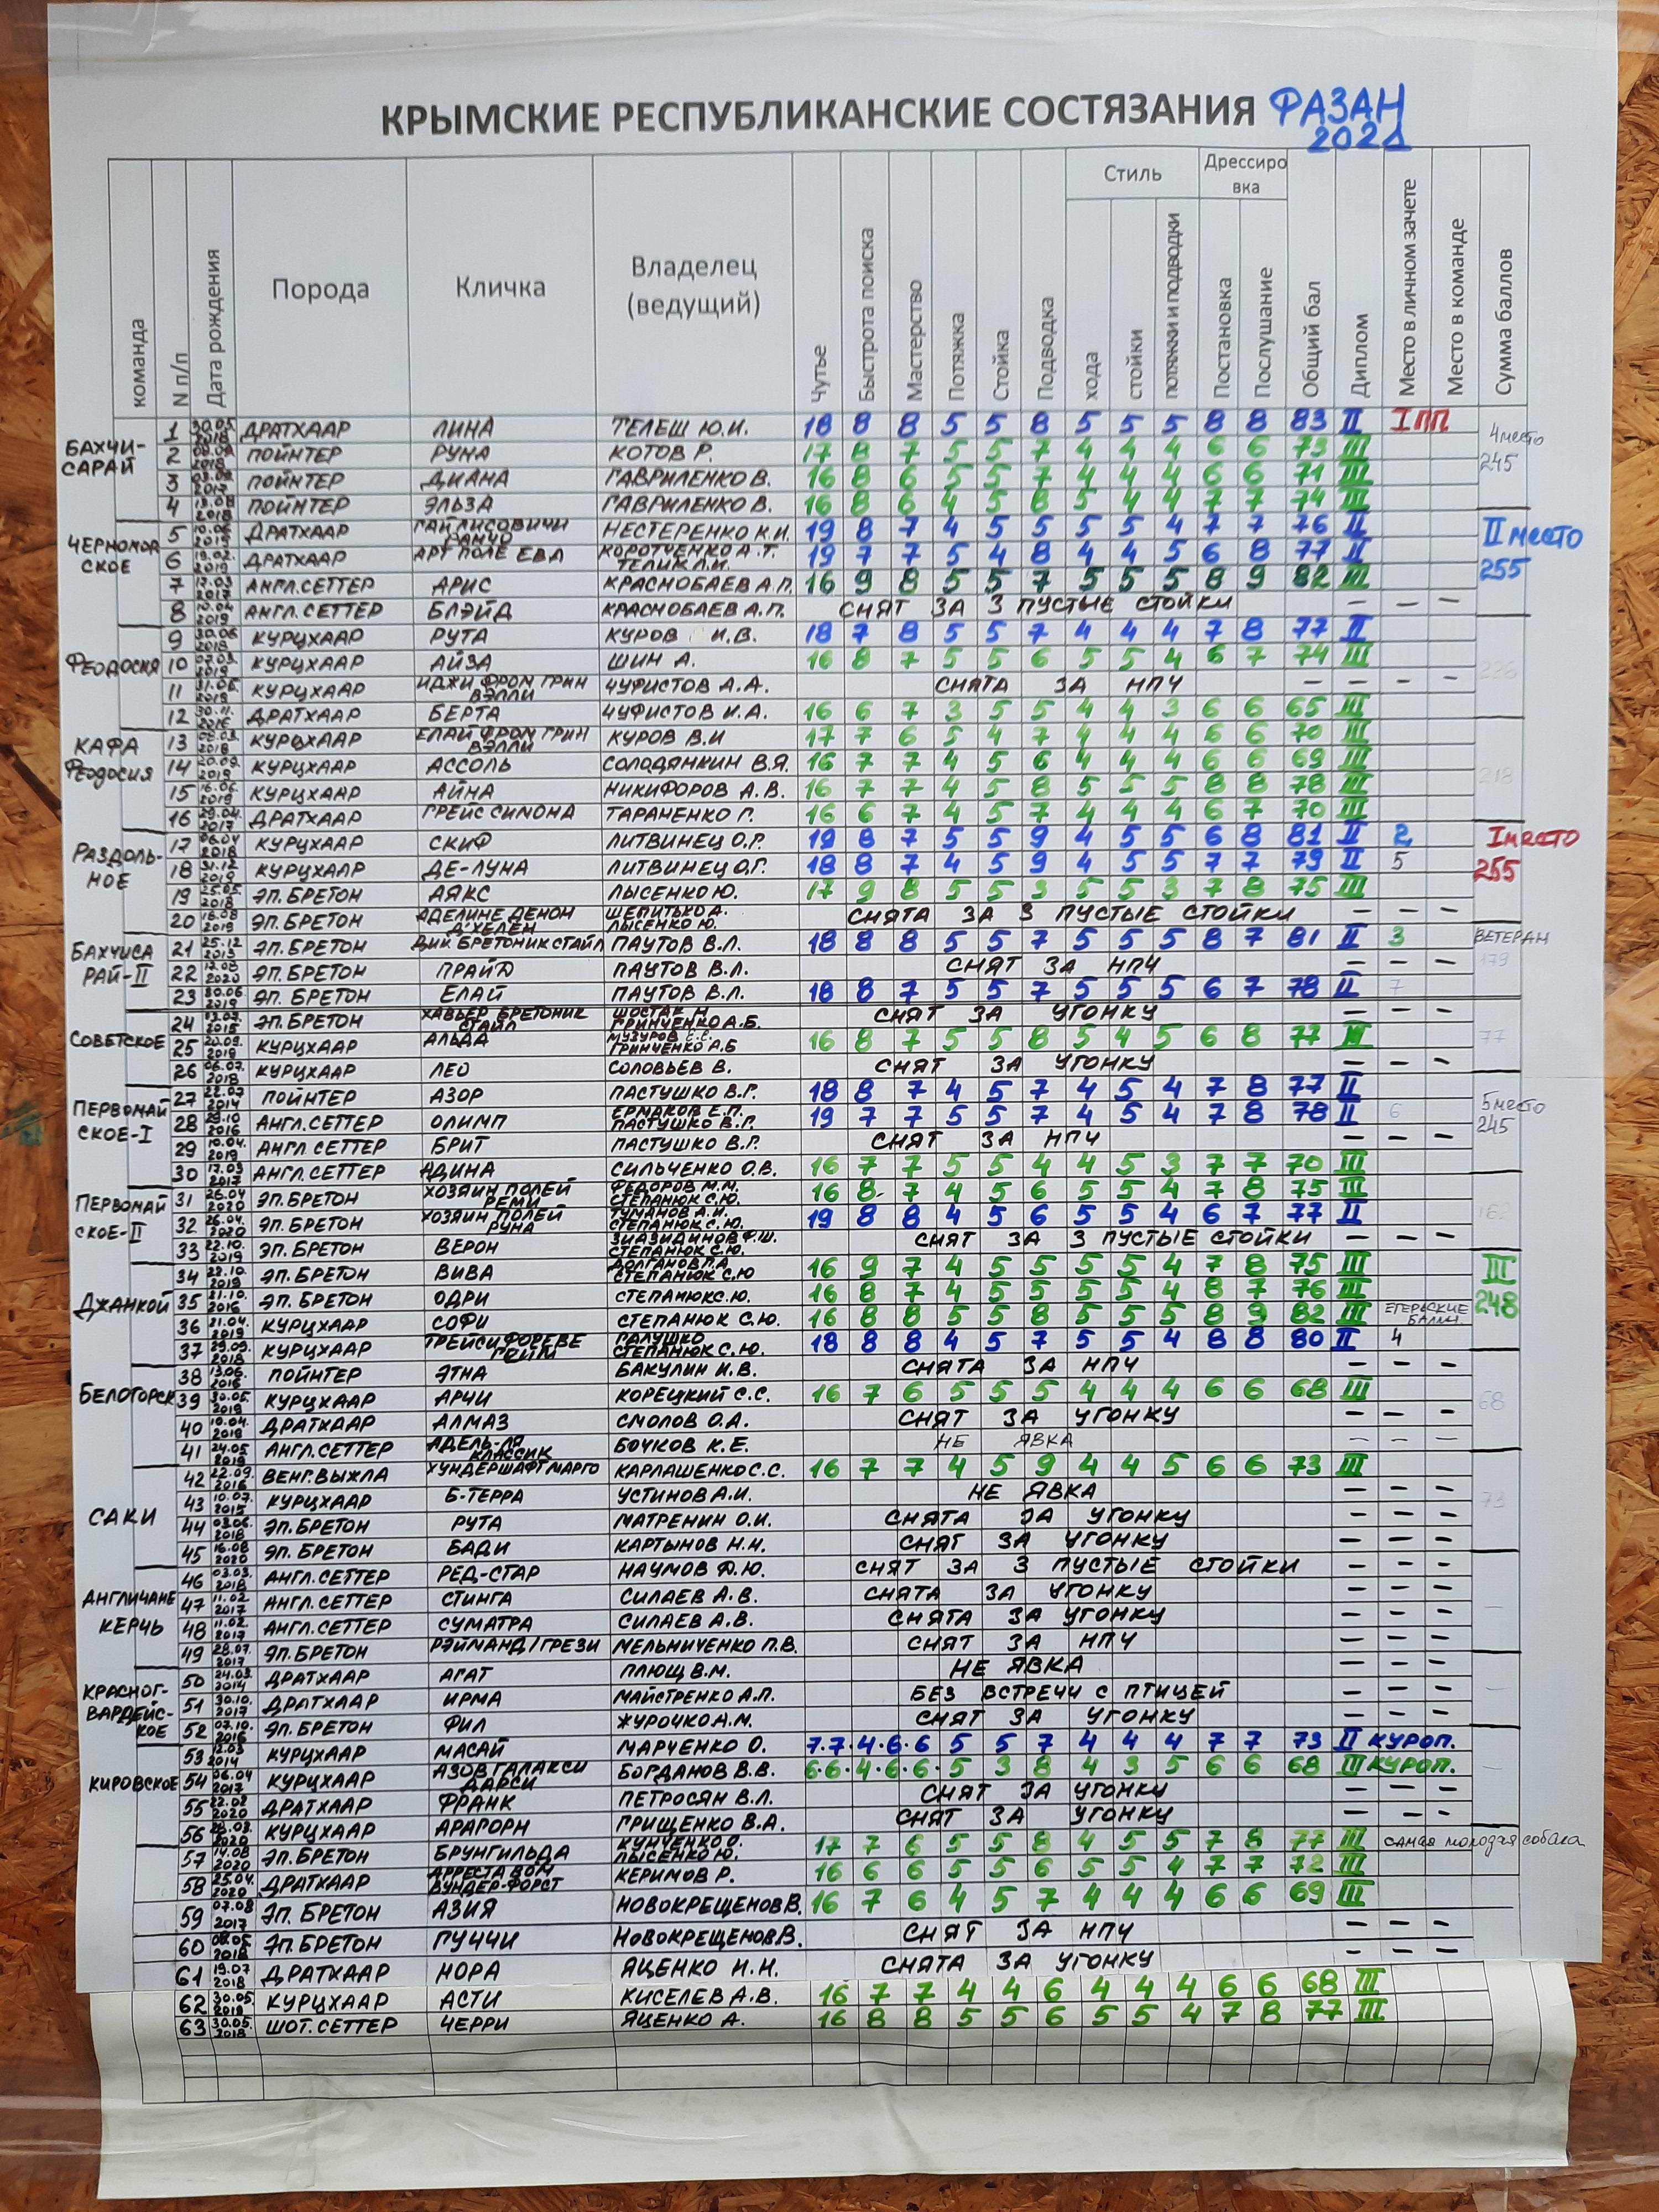 КРЫМСКИЕ РЕСПУБЛИКАНСКИЕ СОСТЯЗАНИЯ ФАЗАН
2021
команда N п/п Дата рождения Порода Кличка Владелец (ведущий) Чутье Быстрота поиска Мастерство Потяжка Стойка Подводка Стиль хода стойки потяжки и подводки Дрессировка Постановка Послушание Общий бал Диплом Место в личном зачете Место в команде Сумма баллов
БАХЧИ-САРАЙ 4 место 245
1 30.05 2018 ДРАТХААР ЛИНА ТЕЛЕШ Ю.И. 18 8 8 5 5 8 5 5 5 8 8 83 II I ПП
2 2018 ПОЙНТЕР РУНА КОТОВ Р. 17 8 7 5 5 7 4 4 4 6 6 73 III
3 2017 ПОЙНТЕР ДИАНА ГАВРИЛЕНКО В. 16 8 6 5 5 7 4 4 4 6 6 71 III
4 2018 ПОЙНТЕР ЭЛЬЗА ГАВРИЛЕНКО В. 16 8 6 4 5 8 5 4 4 7 7 74 III
ЧЕРНОМОРСКОЕ II место 255
5 10.06 2019 ДРАТХААР ГАЙ ЛИСОВИЧИ РАНЧО НЕСТЕРЕНКО К.И. 19 8 7 4 5 5 5 5 4 7 7 76 II
6 19.02. 2019 ДРАТХААР АРТ ПОЛЕ ЕВА КОРОТЧЕНКО А.Т. ТЕЛИК Л.И. 19 7 7 5 4 8 4 4 5 6 8 77 II
7 2017 АНГЛ.СЕТТЕР АРИС КРАСНОБАЕВ А.П. 16 9 8 5 5 7 5 5 5 8 9 82 III
8 10.04 2019 АНГЛ.СЕТТЕР БЛЭЙД КРАСНОБАЕВ А.П. СНЯТ ЗА 3 ПУСТЫЕ СТОЙКИ — — —
ФЕОДОСИЯ 226
9 30.06 2018 КУРЦХААР РУТА КУРОВ И.В. 18 7 8 5 5 7 4 4 4 7 8 77 II
10 07.03. 2019 КУРЦХААР АЙЗА ШИН А. 16 8 7 5 5 6 5 5 4 6 7 74 III
11 2019 КУРЦХААР ИДЖИ ФРОМ ГРИН ВЭЛЛИ ЧУФИСТОВ А.А. СНЯТА ЗА НПЧ — — — —
12 30.11. 2016 ДРАТХААР БЕРТА ЧУФИСТОВ И.А. 16 6 7 3 5 5 4 4 3 6 6 65 III
КАФА ФЕОДОСИЯ 218
13 08.03. 2018 КУРЦХААР ЕЛАЙ ФРОМ ГРИН ВЭЛЛИ КУРОВ В.И 17 7 6 5 4 7 4 4 4 6 6 70 III
14 20.09. 2019 КУРЦХААР АССОЛЬ СОЛОДЯНКИН В.Я. 16 7 7 4 5 6 4 4 4 6 6 69 III
15 16.06. 2019 КУРЦХААР АЙНА НИКИФОРОВ А.В. 16 7 7 4 5 8 5 5 5 8 8 78 III
16 29.04. 2017 ДРАТХААР ГРЕЙС СИМОНА ТАРАНЕНКО Г. 16 6 7 4 5 7 4 4 4 6 7 70 III
РАЗДОЛЬНОЕ I место 255
17 06.04 2018 КУРЦХААР СКИФ ЛИТВИНЕЦ О.Г. 19 8 7 5 5 9 4 5 5 6 8 81 II 2
18 31.12 2019 КУРЦХААР ДЕ-ЛУНА ЛИТВИНЕЦ О.Г. 18 8 7 4 5 9 4 5 5 7 7 79 II 5
19 25.05 2018 ЭП.БРЕТОН АЯКС ЛЫСЕНКО Ю. 17 9 8 5 5 3 5 5 3 7 8 75 III
20 18.08 2019 ЭП.БРЕТОН АДЕЛИНЕ ДЕНОН Д'ХЕЛЕН ШЕПИТЬКО А. ЛЫСЕНКО Ю. СНЯТА ЗА 3 ПУСТЫЕ СТОЙКИ — — —
БАХЧИСАРАЙ-II 179
21 25.12 2013 ЭП.БРЕТОН ДИК БРЕТОНИК СТАЙЛ ПАУТОВ В.Л. 18 8 8 5 5 7 5 5 5 8 7 81 II 3 ВЕТЕРАН
22 2020 ЭП.БРЕТОН ПРАЙД ПАУТОВ В.Л. СНЯТ ЗА НПЧ — — —
23 30.06 2019 ЭП.БРЕТОН ЕЛАЙ ПАУТОВ В.Л. 18 8 7 5 5 7 5 5 5 6 7 78 II 7
СОВЕТСКОЕ 77
24 2015 ЭП.БРЕТОН ХАВЬЕР БРЕТОНИК СТАЙЛ ШОСТАК Н. ГРИНЧЕНКО А.Б. СНЯТ ЗА УГОНКУ — — —
25 20.09. 2019 КУРЦХААР АЛЬДА МУЗУРОВ С.С. ГРИНЧЕНКО А.Б 16 8 7 5 5 8 5 4 5 6 8 77 III
26 06.07. 2018 КУРЦХААР ЛЕО СОЛОВЬЕВ В. СНЯТ ЗА УГОНКУ — — —
ПЕРВОМАЙСКОЕ-I 5 место 245
27 22.07 2014 ПОЙНТЕР АЗОР ПАСТУШКО В.Г. 18 8 7 4 5 7 4 5 4 7 8 77 II
28 29.10 2016 АНГЛ.СЕТТЕР ОЛИМП ЕРМАКОВ Е.П. ПАСТУШКО В.Г. 19 7 7 5 5 7 4 5 4 7 8 78 II 6
29 10.04. 2019 АНГЛ.СЕТТЕР БРИТ ПАСТУШКО В.Г. СНЯТ ЗА НПЧ — — —
30 17.03 2017 АНГЛ.СЕТТЕР АДИНА СИЛЬЧЕНКО О.В. 16 7 7 5 5 4 4 5 3 7 7 70 III
ПЕРВОМАЙСКОЕ-II 152
31 26.04 2020 ЭП.БРЕТОН ХОЗЯИН ПОЛЕЙ РЕМИ ФЕДОРОВ М.М. СТЕПАНЮК С.Ю. 16 8 7 4 5 6 5 5 4 7 8 75 III
32 26.04. 2020 ЭП.БРЕТОН ХОЗЯИН ПОЛЕЙ РУНА ТУМАНОВ А.И. СТЕПАНЮК С.Ю. 19 8 8 4 5 6 5 5 4 6 7 77 II
33 22.10 2019 ЭП.БРЕТОН ВЕРОН ЗИАЗИДИНОВ Ф.Ш. СТЕПАНЮК С.Ю. СНЯТ ЗА 3 ПУСТЫЕ СТОЙКИ — — —
ДЖАНКОЙ III 248
34 22.10. 2019 ЭП.БРЕТОН ВИВА ДОЛГАНОВ П.А СТЕПАНЮК С.Ю 16 9 7 4 5 5 5 5 4 7 8 75 III
35 21.10. 2016 ЭП.БРЕТОН ОДРИ СТЕПАНЮК С.Ю. 16 8 7 4 5 5 5 5 4 8 7 76 III
36 21.04. 2019 КУРЦХААР СОФИ СТЕПАНЮК С.Ю. 16 8 8 5 5 8 5 5 5 8 9 82 III ЕГЕРЬСКИЕ БАЛЛЫ
37 29.09. 2018 КУРЦХААР ТРЕЙСИ ФОРЕВЕ ГЕЙМ ГАЛУШКО СТЕПАНЮК С.Ю. 18 8 8 4 5 7 5 5 4 8 8 80 II 4
БЕЛОГОРСК 68
38 13.06. 2016 ПОЙНТЕР ЭТНА БАКУЛИН И.В. СНЯТА ЗА НПЧ — — —
39 30.05. 2019 КУРЦХААР АРЧИ КОРЕЦКИЙ С.С. 16 7 6 5 5 5 4 4 4 6 6 68 III
40 10.04. 2018 ДРАТХААР АЛМАЗ СМОЛОВ О.А. СНЯТ ЗА УГОНКУ — — —
41 24.05 2019 АНГЛ.СЕТТЕР АДЕЛЬ-ЛЯ КЛАССИК БОЧКОВ К.Е. НЕ ЯВКА — — —
САКИ 73
42 22.09. 2016 ВЕНГ.ВЫЖЛА ХУНДЕРШАФТ МАРГО КАРЛАШЕНКО С.С. 16 7 7 4 5 9 4 4 5 6 6 73 III
43 10.07. 2015 КУРЦХААР Б-ТЕРРА УСТИНОВ А.И. НЕ ЯВКА — — —
44 03.06. 2018 ЭП.БРЕТОН РУТА МАТРЕНИН О.И. СНЯТА ЗА УГОНКУ — — —
45 16.08 2020 ЭП.БРЕТОН БАДИ КАРТЫНОВ Н.Н. СНЯТ ЗА УГОНКУ — — —
АНГЛИЧАНЕ КЕРЧЬ —
46 03.03. 2018 АНГЛ.СЕТТЕР РЕД-СТАР НАУМОВ Ф.Ю. СНЯТ ЗА 3 ПУСТЫЕ СТОЙКИ — — —
47 11.02 2017 АНГЛ.СЕТТЕР СТИНГА СИЛАЕВ А.В. СНЯТА ЗА УГОНКУ — — —
48 11.02. 2017 АНГЛ.СЕТТЕР СУМАТРА СИЛАЕВ А.В. СНЯТА ЗА УГОНКУ — — —
49 28.07. 2017 ЭП.БРЕТОН РЭЙМАНД/ГРЕЗИ МЕЛЬНИЧЕНКО П.В. СНЯТ ЗА НПЧ — — —
КРАСНОГ-ВАРДЕЙС-КОЕ —
50 24.03. 2014 ДРАТХААР АГАТ ПЛЮЩ В.М. НЕ ЯВКА — — —
51 30.10. 2017 ДРАТХААР ИРМА МАЙСТРЕНКО А.П. БЕЗ ВСТРЕЧИ С ПТИЦЕЙ — — —
52 07.10. 2016 ЭП.БРЕТОН ФИЛ ЖУРОЧКО А.М. СНЯТ ЗА УГОНКУ — — —
КИРОВСКОЕ —
53 12.03 2014 КУРЦХААР МАСАЙ МАРЧЕНКО О. 7·7·4·6·6 5 5 7 4 4 4 7 7 73 II КУРОП.
54 06.04 2017 КУРЦХААР АЗОВ ГАЛАКСИ ДАРСИ БОРДАНОВ В.В. 6·6·4·6·6·5 3 8 4 3 5 6 6 68 III КУРОП.
55 22.02 2020 ДРАТХААР ФРАНК ПЕТРОСЯН В.Л. СНЯТ ЗА УГОНКУ — — —
56 2020 КУРЦХААР АРАГОРН ГРИЩЕНКО В.А. СНЯТ ЗА УГОНКУ — — —
57 14.08 2020 ЭП.БРЕТОН БРУНГИЛЬДА КУНЧЕНКО О. ЛЫСЕНКО Ю. 17 7 6 5 5 8 4 5 5 7 8 77 III самая молодая собака
58 25.04. 2020 ДРАТХААР АРРЕСТА ВОМ ВУНДЕР-ФОРСТ КЕРИМОВ Р. 16 6 6 5 5 6 5 5 4 7 7 72 III
59 07.08 2017 ЭП.БРЕТОН АЗИЯ НОВОКРЕЩЕНОВ В. 16 7 6 4 5 7 4 4 4 6 6 69 III
60 2018 ЭП.БРЕТОН ГУЧЧИ НОВОКРЕЩЕНОВ В. СНЯТ ЗА НПЧ — — —
61 19.07 2018 ДРАТХААР НОРА ЯЦЕНКО Н.Н. СНЯТА ЗА УГОНКУ — — —
62 30.05. 2019 КУРЦХААР АСТИ КИСЕЛЕВ А.В. 16 7 7 4 4 6 4 4 4 6 6 68 III
63 30.05. 2018 ШОТ.СЕТТЕР ЧЕРРИ ЯЦЕНКО А. 16 8 8 5 5 6 5 5 4 7 8 77 III